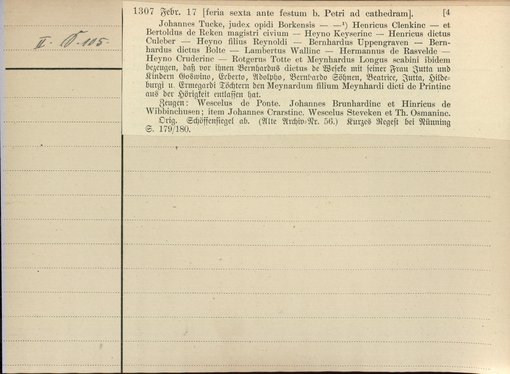 1307 Febr. 17 [feria sexta ante festum b. Petri ad cathedram]. [4
II. IV. 105.
Johannes Tucke, judex opidi Borkensis — —¹) Henricus Clenkine — et
Bertoldus de Reken magistri civium — Heyno Keyserinc — Henricus dictus
Culeber — Heyno filius Reynoldi — Bernhardus Uppengraven — Bern-
hardus dictus Bolte — Lambertus Wallinc — Hermannus de Rasvelde —
Heyno Cruderinc — Rotgerus Totte et Meynhardus Longus scabini ibidem
bezeugen, daß vor ihnen Bernhardus dictus de Weseke mit seiner Frau Jutta und
Kindern Goswino, Erberto, Adolpho, Bernhardo Söhnen, Beatrice, Jutta, Hilde-
burgi u. Ermegardi Töchtern den Meynardum filium Meynhardi dicti de Printinc
aus der Hörigkeit entlassen hat.
Zeugen: Wescelus de Ponte. Johannes Brunhardinc et Hinricus de
Wibbinchusen; item Johannes Crarstinc. Wescelus Steveken et Th. Osmaninc.
Orig. Schöffensiegel ab. (Alte Archiv-Nr. 56.) Kurzes Regest bei Nünning
S. 179/180.